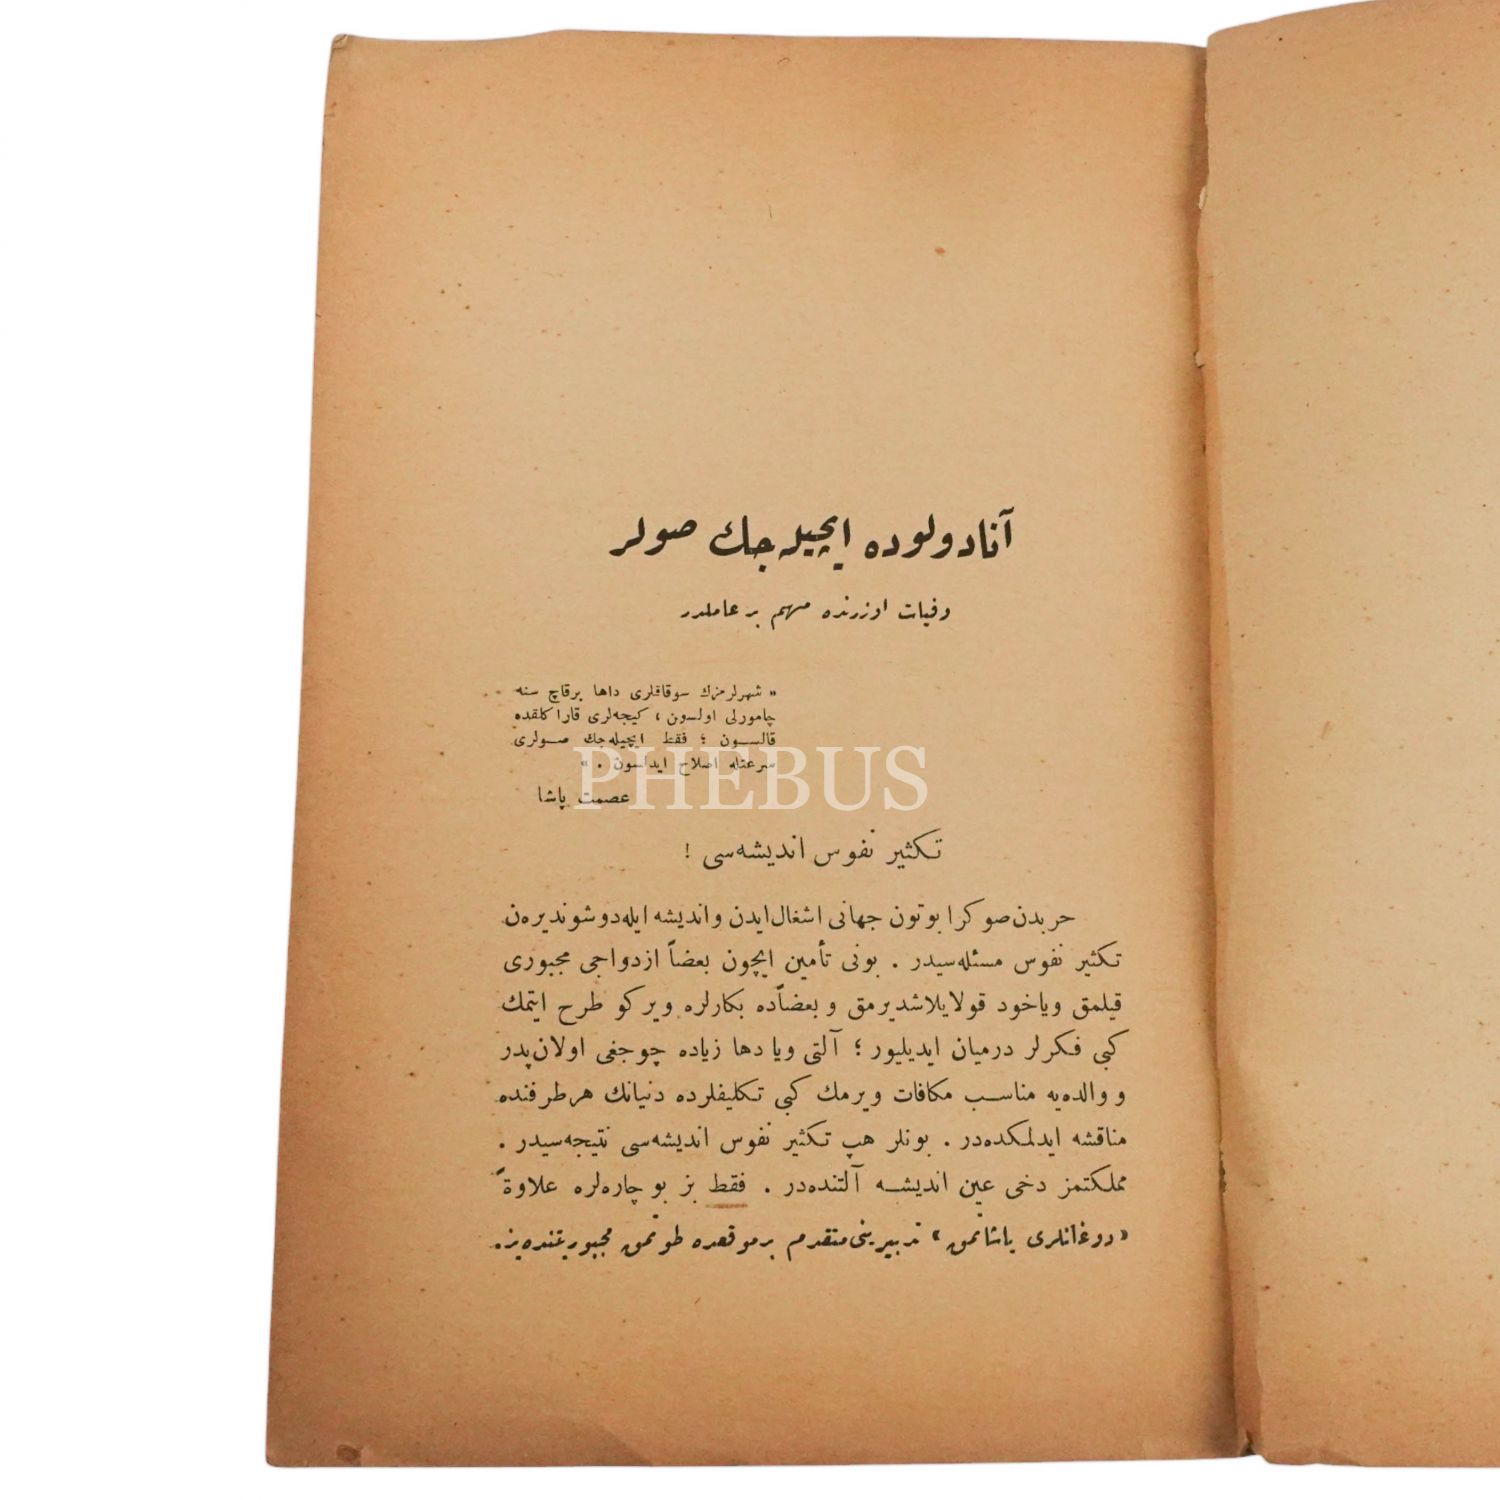 آنادولوده ایچیله‌جك صولر
وفیات اوزرنده مهم بر عاملدر
« شهرلرمزك سوقاقلری داها برقاچ سنه
چامورلی اولسون ، كیجه‌لری قاراكلقده
قالسون ؛ فقط ایچیله‌جك صولری
سرعتله اصلاح ایدلسون . »
عصمت پاشا
تكثیر نفوس اندیشه‌سی !
حربدن صوكرا بوتون جهانی اشغال ایدن و اندیشه ایله دوشوندیره‌ن
تكثیر نفوس مسئله‌سیدر . بونی تأمین ایچون بعضاً ازدواجی مجبوری
قیلمق ویاخود قولایلاشدیرمق و بعضاًده بكارلره ویركو طرح ایتمك
كبی فكرلر درمیان ایدیلیور ؛ آلتی ویا دها زیاده چوجغی اولان پدر
و والده‌یه مناسب مكافات ویرمك كبی تكلیفلرده دنیانك هر طرفنده
مناقشه ایدلمكده‌در . بونلر هپ تكثیر نفوس اندیشه‌سی نتیجه‌سیدر .
مملكتمز دخی عین اندیشه آلتنده‌در . فقط بز بو چاره‌لره علاوةً
« دوغانلری یاشاتمق » تدبیرینی متقدم بر موقعده طوتمق مجبوریتنده‌یز .
PHEBUS